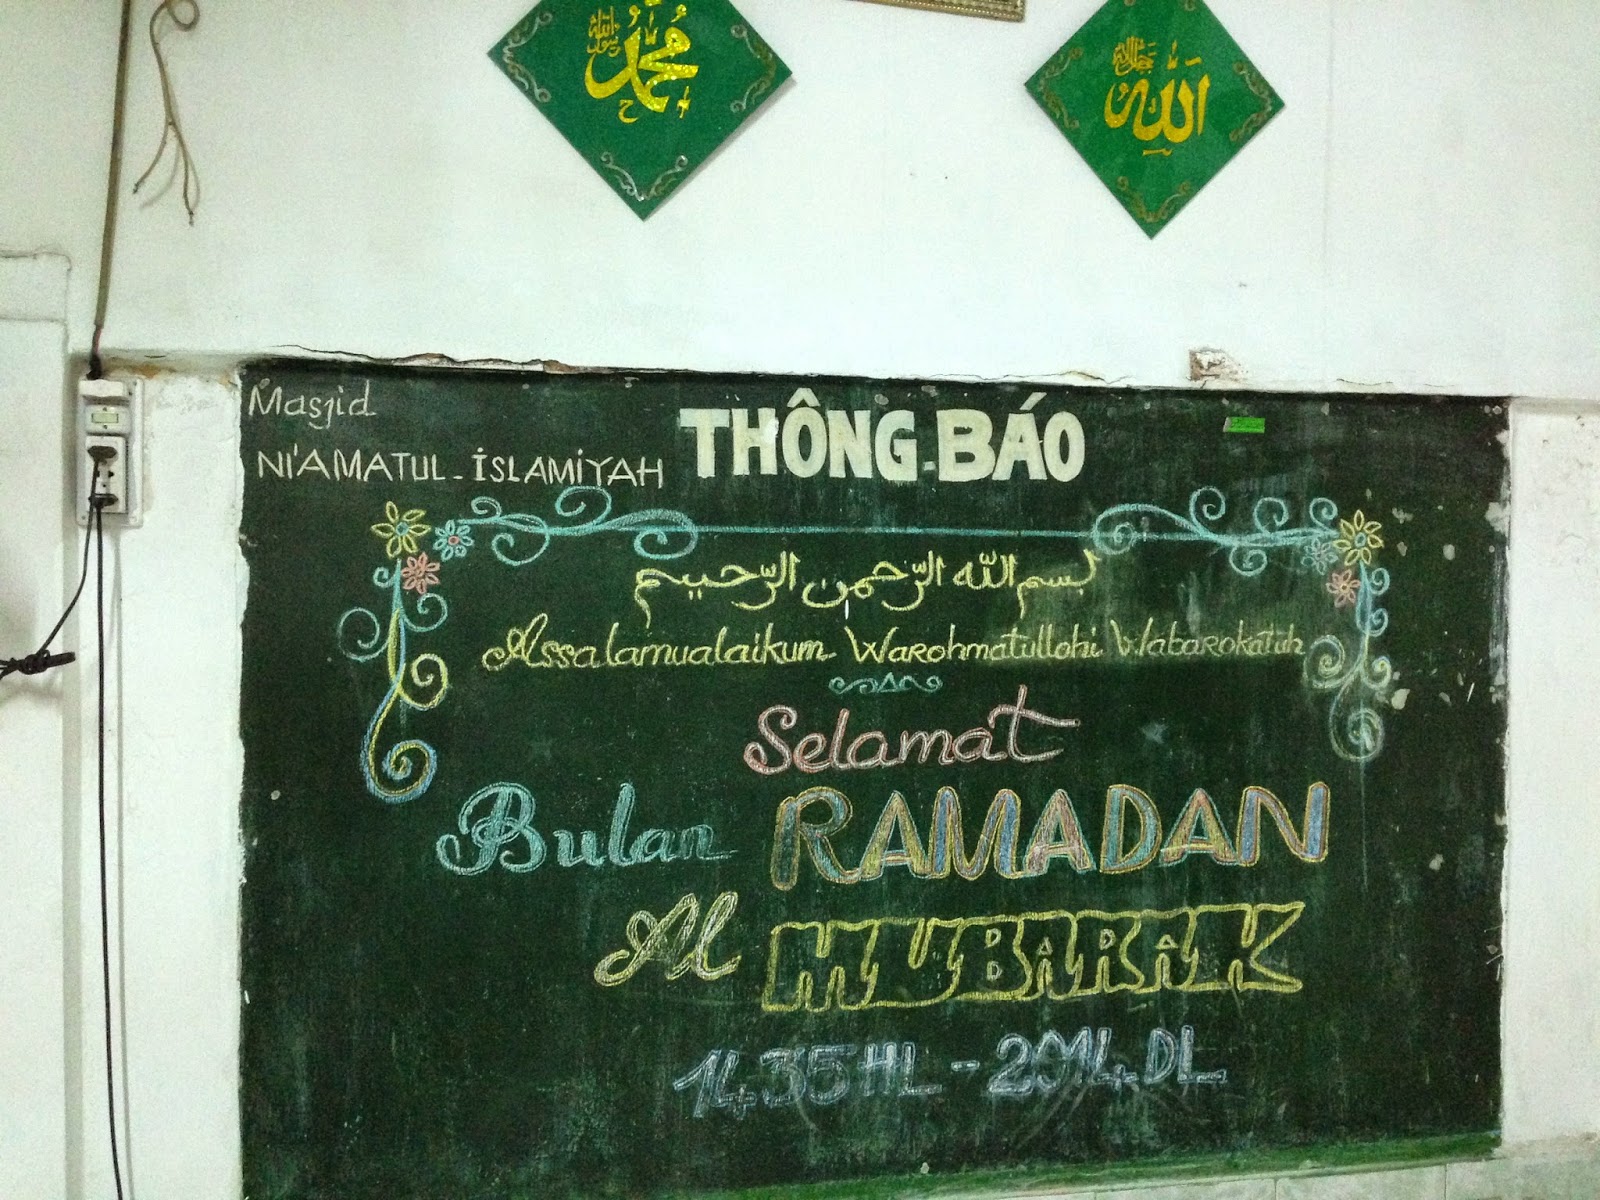 محمد رسول الله
الله جل جلاله
Masjid
NI'AMATUL - İSLAMİYAH
THÔNG-BÁO
بسم الله الرّحمن الرّحيم
Assalamualaikum Warohmatullohi Wabarokatuh
Selamat
Bulan RAMADAN
Al MUBARAK
1435HL - 2014.DL